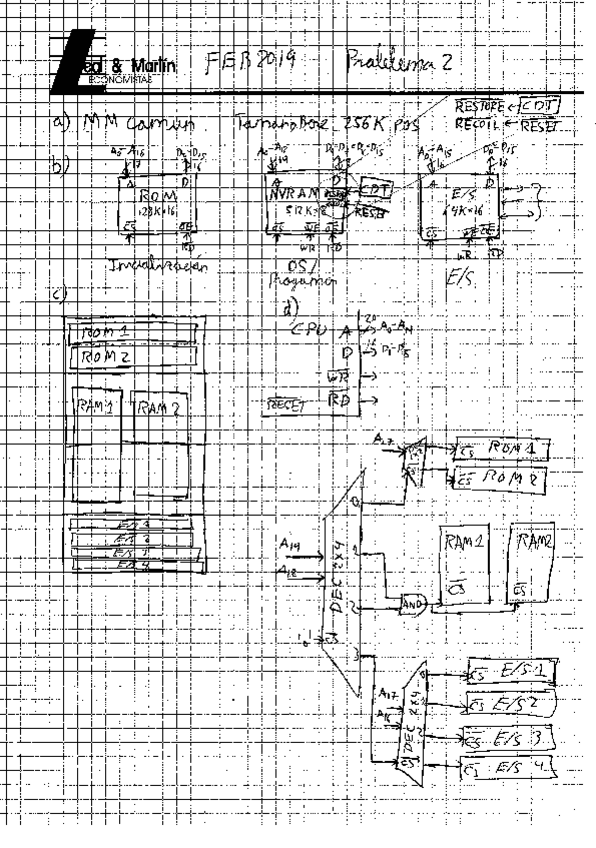 Led & Marlín
ECONOMISTAS
FEB 2019 Problema 2
a) MM Común Tamaño Base 256K pos
RESTORE ← CDT
RECOIL ← RESET
b)
A0-A16 D0-D15
17 16
A D
ROM
128K×16
CS OE
RD
Inicialización
19
A D
NVRAM
512K×8
CS WE OE
WR RD
CDT
RESET
OS/
Programas
A0-A15 D0-D15
16 16
A D
E/S
64K×16
CS WE OE
WR RD
E/S
c)
ROM 1
ROM 2
RAM 1 RAM 2
E/S 1
E/S 2
E/S 3
E/S 4
d)
CPU A 20 A0-A19
D 16 D0-D15
WR
RESET RD
A17
CS ROM 1
CS ROM 2
A19
A18
DEC 2x4
0
1
2
3
CS
AND
RAM 1 RAM 2
CS CS
A17
A16
DEC 2x4
CS
CS E/S 1
CS E/S 2
CS E/S 3
CS E/S 4